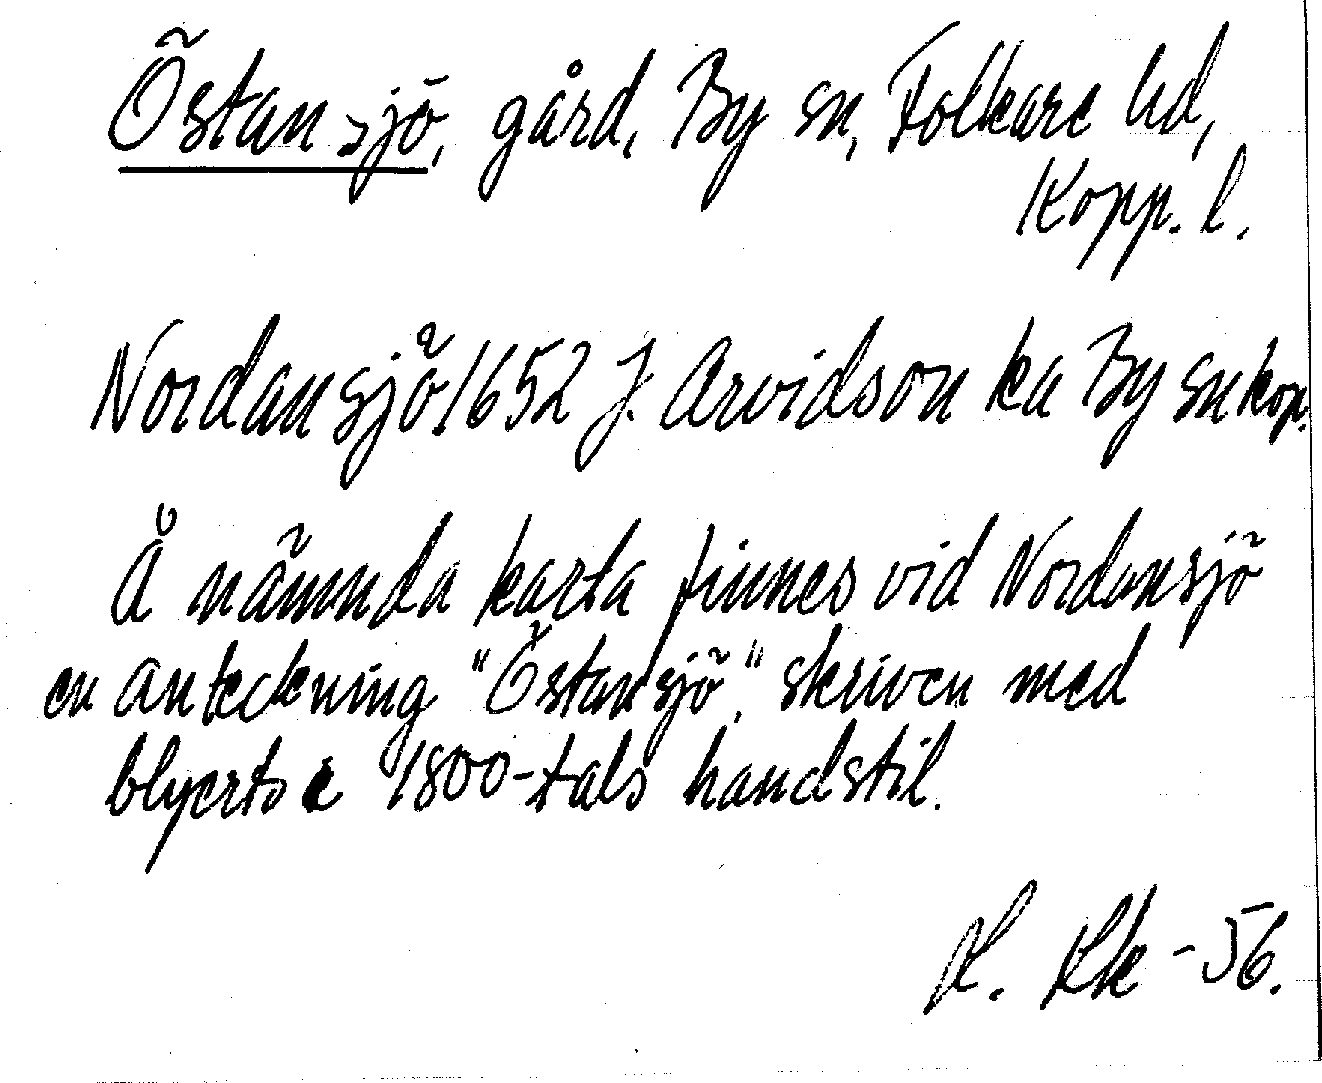 Östansjö, gård, By sn, Folkare hd,
Kopp. l.
Nordansjö 1652 J. Arvidson ka By sn kop.
Å nämnda karta finnes vid Nordansjö
en anteckning "Östansjö", skriven med
blyerts e 1800-tals handstil.
-56.